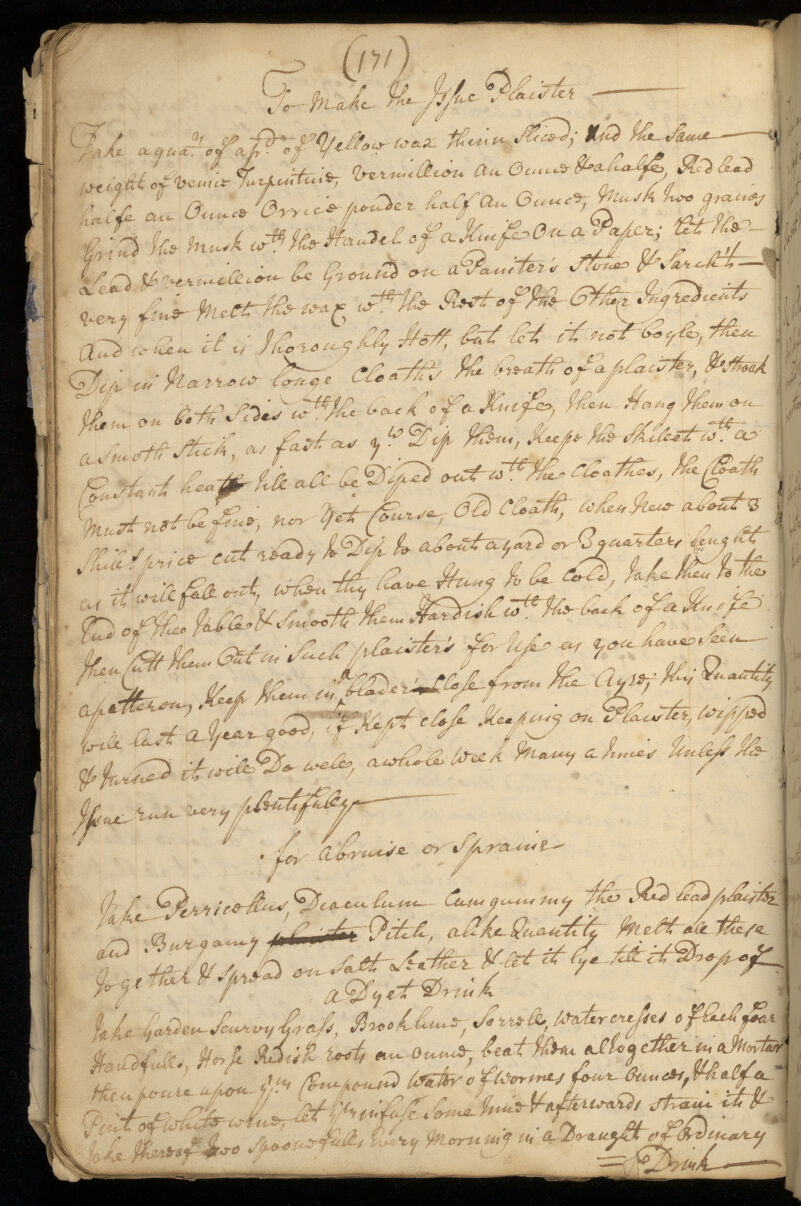 (171)
To make the Issue Plaister
Take a quar. of a pd. of Yellow wax thinn Sliced; and the Same
weight of venice Turpintine, vermillion an Ounce & a halfe, Red lead
halfe an Ounce Orrice pouder half an Ounce, Musk two graines
Grind the Musk wth. the Handel of a Knife On a Paper; let the
Lead & vermillion be Ground on a Painter's Stone & Sarch't
very fine Melt the wax wth. the Rest of the Other Ingredients
And when it is Thoroughly Hott, but let it not boyle, then
Dip in Narrow longe Cloaths the breath of a plaister, & stroak
them on both Sides wth. the back of a Knife, then Hang them on
a smoth Stick, as fast as yu Dip them, Keepe the Skileet wth. a
Constant heat till all be Diped out wth. the Cloathes, the Cloath
Must not be fine, nor Yet Course, Old Cloath, when New about 3
Shill: price cut ready to Dip to about a yard or 3 quarters lenght
as it will fall out, when thy have Hung to be Cold, take then to the
End of the Table & Smooth them Hardish wth. the back of a Knife
then Cutt them Out in Such plaister's for Use as you have Seen
a patteron, Keep them in a blader Close from the Ayre; this Quantity
will last a Year good, if Kept close Keeping on Plaister, wipped
& turned it will Do well, a whole Week Many a times Unless the
Issue run very plentifully
for a bruise or Spraine
Take Perricellus, Diaculum Cumgummy the Red lead plaister
and Burgamy Pitch, alike Quantity Melt all these
together & Spread on Salt Leather & let it lye till it Drop of
a Dyet Drink
Take Garden Scurvy Grass, Brooklime, Sorrell, watercresses of Each four
Handfulls, Horse Redish roots an ounce, beat them altogether in a Mortar
then poure upon ym Compound Water of wormes four Ounces, & half a
Pint of white wine, let ym infuse Some time & afterwards strain it &
take thereof two Spoonefulls Every Morning in a Draught of Ordinary
Drink